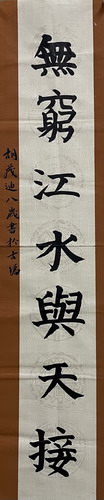 無窮江水與天接
胡茂迪八歲書於古徽